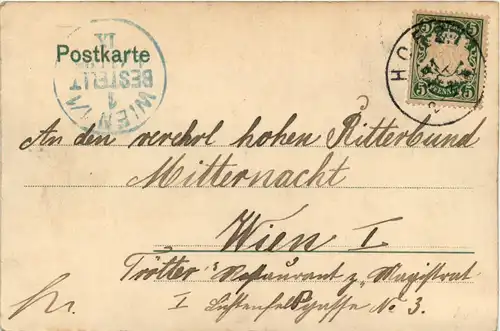 Postkarte
WIEN 1/1
BESTELLT
1
IX
HO
5 5
5 PFENNIG 5
An den verehrl hohen Ritterbund
Mitternacht
Wien I
Trötter's Restaurant z. "Magistrat"
I Lichtenfelsgasse No 3.